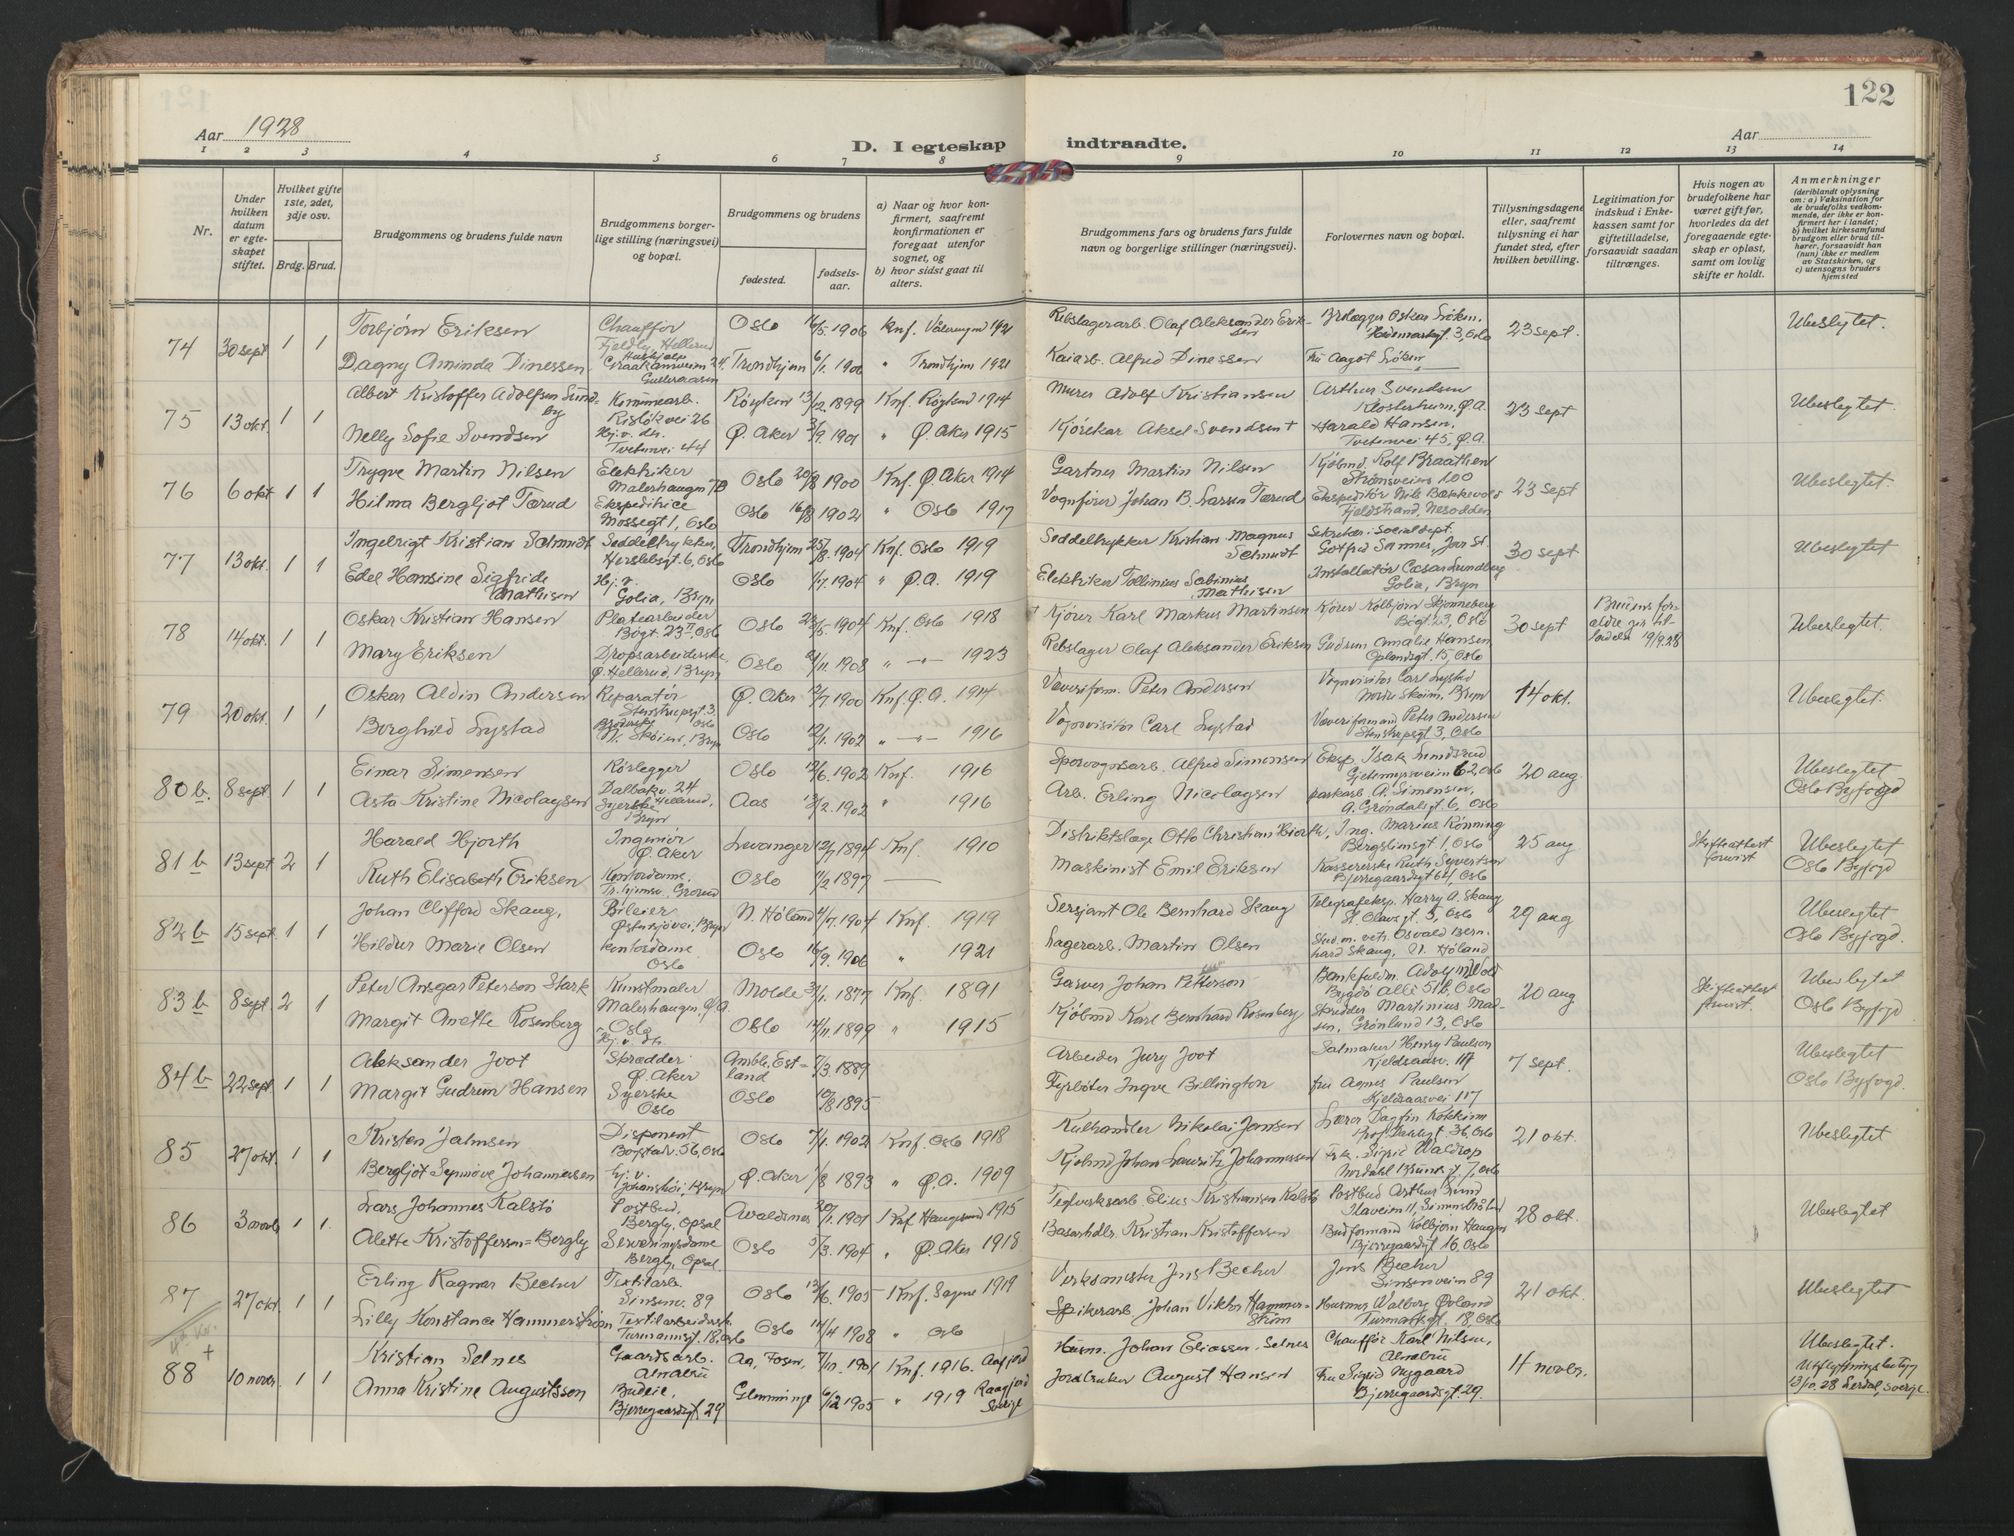 122
Aar 1928
D. I egteskap indtraadte.
Aar
1 2 3 4 5 6 7 8 9 10 11 12 13 14
Nr.
Under hvilken datum er egteskapet stiftet.
Hvilket gifte 1ste, 2det, 3dje osv.
Brdg. Brud.
Brudgommens og brudens fulde navn
Brudgommens borgerlige stilling (næringsvei) og bopæl.
Brudgommens og brudens
fødested.
fødselsaar.
a) Naar og hvor konfirmert, saafremt konfirmationen er foregaat utenfor sognet, og
b) hvor sidst gaat til alters.
Brudgommens fars og brudens fars fulde navn og borgerlige stillinger (næringsvei).
Forlovernes navn og bopæl.
Tillysningsdagene eller, saafremt tillysning ei har fundet sted, efter hvilken bevilling.
Legitimation for indskud i Enkekassen samt for giftetilladelse, forsaavidt saadan tiltrænges.
Hvis nogen av brudefolkene har været gift før, hvorledes da det foregaaende egteskap er opløst, samt om lovlig skifte er holdt.
Anmerkninger
(deriblandt oplysning om: a) Vaksination for de brudefolks vedkommende, der ikke er konfirmert her i landet; b) hvilket kirkesamfund brudgom eller brud tilhører, forsaavidt han (hun) ikke er medlem av Statskirken, og c) utensogns bruders hjemsted
74 30 sept 1 1 Torbjørn Eriksen Chauffør Fjeldly, Hellerud Oslo 16/5 1906 Knf. Vålerengen 1921 Rebslagerarb. Olaf Aleksander Eriksen Oskar 3, Oslo 23 sept. Ubeslegtet.
Dagny Aminda Dinessen Trondhjem 6/1 1906 " Trondhjem 1921 Kaiarb. Alfred Dinessen Fru Aagot
75 13 okt. 1 1 Albert Kristoffer Adolfsen Sundby Kommunearb. Risløkvei 26 Røyken 13/12 1899 Knf. Røyken 1914 Murer Adolf Kristiansen Arthur Svendsen Klosterheim, Ø.A. 23 sept Ubeslegtet.
Nelly Sofie Svendsen Hj.v. der. Tvetenvei 44 Ø. Aker 3/9. 1901 " Ø. Aker 1915 Kjørekar Aksel Svendsen + Harald Hansen, Tvetenvei 45, Ø.A.
76 6 okt 1 1 Trygve Martin Nilsen Elektriker Malerhaugen 7B Oslo 20/8 1900 Knf. Ø. Aker 1914 Gartner Martin Nilsen Kjøbmd. Rolf Braathen Strømsveien 100 23 sept Ubeslegtet.
Hilma Bergljot Tærud Ekspeditrice Mossegt 1, Oslo Oslo 16/8 1902 " Oslo 1917 Vognfører Johan B. Larsen Tærud Ekspeditør Nils Bekkevold Fjeldstrand, Nesodden
77 13 okt. 1 1 Ingebrigt Kristian Schmidt Seddeltrykker, Herslebsgt 6, Oslo Trondhjem 25/8 1904 Knf. Oslo 1919 Seddeltrykker Kristian Magnus Schmidt Sekretær i Socialdept. Gotfred Sannes, 30 sept Ubeslegtet
Edel Hansine Sigfride Mathisen Hj. v. Golia, Bryn Oslo 1/7. 1904 " Ø.A. 1919 Elektriker Tollinius Sabinius Mathisen Installatør Cæsar Lundberg Golia, Bryn
78 14 okt. 1 1 Oskar Kristian Hansen Platearbeider Bøgt. 23 Oslo Oslo 23/5 1904 Knf. Oslo 1918 + Kjører Karl Markus Martinsen Kører Kolbjørn Skjønneberg Bøgt. 23, Oslo 30 sept Brudens forældre gir tilladelse 19/9.28 Ubeslegtet
Mary Eriksen Dropsarbeiderske, Ø. Hellerud, Bryn Oslo 1908 " 1923 Rebslager Olaf Aleksander Eriksen Gudrun Amalie Hansen Oplandsgt. 15, Oslo
79 20 okt. 1 1 Oskar Aldin Andersen Reparatør Stenstrupsgt. 3 Oslo Ø. Aker 2/7 1900 Knf. Ø.A. 1914 Væveriform. Peter Andersen Vognvisitør Carl Lystad Nordre Skøien, Bryn 14 okt. Ubeslegtet.
Borghild Lystad Broderske N. Skøien, Bryn Oslo 12/1. 1902 " 1916 Vognvisitør Carl Lystad Væveriformand Peter Andersen Stenstrupsgt 3, Oslo
80 b. 8 sept. 1 1 Einar Simensen Rørlegger Dalbakv. 24 Oslo 12/6. 1902 Knf. 1916 Sporvognsarb. Alfred Simensen Eksp. Isak Gjetemyrsveien 62, Oslo 20 aug. Ubeslegtet Oslo Byfogd
Asta Kristine Nicolaysen Syerske Hellerud, Bryn Aas 13/2. 1902 " 1916 Arb. Erling Nicolaysen parkarb. A. Simensen, A. Grøndalsgt. 6, Oslo
81 b 13 sept 2 1 Harald Hjorth Ingeniør Ø. Aker Levanger 12/7 1894 Knf. 1910 Distriktslæge Otto Christian Hjorth Ing. Marius Rønning Bergslinsgt 1, Oslo 25 aug Skifteattest forevist Ubeslegtet Oslo Byfogd
Ruth Elisabeth Eriksen Kontordame, Grorud Oslo 11/2 1897 — Maskinist Emil Eriksen Kassererske Ruth Syvertsen Bjerregaardsgt 64, Oslo
82 b 15 sept. 1 1 Johan Clifford Skaug, Bileier Østensjøvei, Bryn N. Høland 4/7. 1904 Knf. 1919 Sersjant Ole Bernhard Skaug Telegrafeksp. Harry A. Skaug St. Olavsgt. 3, Oslo 29 aug Ubeslegtet Oslo Byfogd.
Hildur Marie Olsen kontordame Oslo Oslo 16/9. 1906 " 1921 Lagerarb. Martin Olsen Stud. m. vetr. Osvald Bernhard Skaug, N. Høland
83 b 8 sept. 2 1 Peter Ansgar Peterson Stark Kunstmaler Malerhaugen, Ø.A. Molde 1877 Knf. 1891 Garver Johan Petterson Bankfuldm. Adolf Wold Bygdø Alle 51b, Oslo 20 aug Skifteattest forevist. Ubeslegtet Oslo Byfogd
Margit Anette Rosenberg Oslo Hj. v. Oslo 12/11. 1899 " 1915 Kjøbmd Karl Bernhard Rosenberg Skredder Martinius Madsen, Grønland 13, Oslo
84 b 22 sept. 1 1 Aleksander Joot Skrædder Ø. Aker Ambla, Estland 7/3. 1889 Arbeider Jury Joot Salmaker Henry Paulson Kjeldsaasv. 117 7 sept. Ubeslegtet Oslo Byfogd.
Margit Gudrun Hansen Syerske Oslo Oslo 10/8 1895 Fyrbøter Ingve Billington fru Agnes Paulsen Kjeldsaasvei 117
85 27 okt. 1 1 Kristen Jahnsen Disponent Bogstadv. 56, Oslo Oslo 7/1. 1902 Knf. Oslo 1918 Kulhandler Nikolai Jansen Lærer Dagfin Prof. Dahlsgt. 36, Oslo 21 okt. Ubeslegtet
Bergljot Synnøve Johannessen hj. v. Bryn Ø. Aker 1/8 1893 " Ø.A. 1909 Kjøbmd Johan Lauritz Johannessen Frk. Sigrid Waldrop Nordahl Brunsgt. 7, Oslo
86 3 novb 1 1. Lars Johannes Kalstø Postbud. Bergly, Opsal Avaldsnes 20/1. 1901 Knf Haugesund 1915 Teglverksarb. Elius Kristiansen Kalstø Postbud Arthur Lund 28 okt. Ubeslegtet
Alette Kristoffersen=Bergly Serveringsdame Bergly, Opsal Oslo 5/3. 1904 " Ø. Aker 1918 Basarhdlr. Kristian Kristoffersen Budformand Kolbjørn Haugen Bjerregaardsgt 16, Oslo
87 27 okt. 1 1 Erling Ragnar Becher Textilarb. Sinsenv. 89 Oslo 13/6. 1905 Knf. Sagene 1919 Verksmester Jens Becher Jens Becher Sinsenveien 89 21 okt. Ubeslegtet
Lilly Konstance Hammerstrøm Textilarbeiderske Turmannsgt. 18, Oslo Oslo 14/4 1908 " Oslo Spikerarb Johan Viktor Hammerstrøm Husmor Walborg Øvland 18, Oslo
88 10 novbr. 1 1 Kristian Selnes Gaardsarb. Alnabru Aa, Fosen 7/10. 1901 Knf. 1916. Aafjord Husm. Johan Eliassen Selnes Chauffør Karl Nilsen, Alnabru 4 novbr. Ubeslegtet. Utlysningsbetyg 13/10.28 Lerdal, Sverige.
Anna Kristine Augustsson Budeie, Bjerregaardsgt. 29 Glemminge 6/12 1905 " 1919 Sverige Jordbruker August Hansen Fru Sigrid Nygaard Bjerregaardsgt. 29.